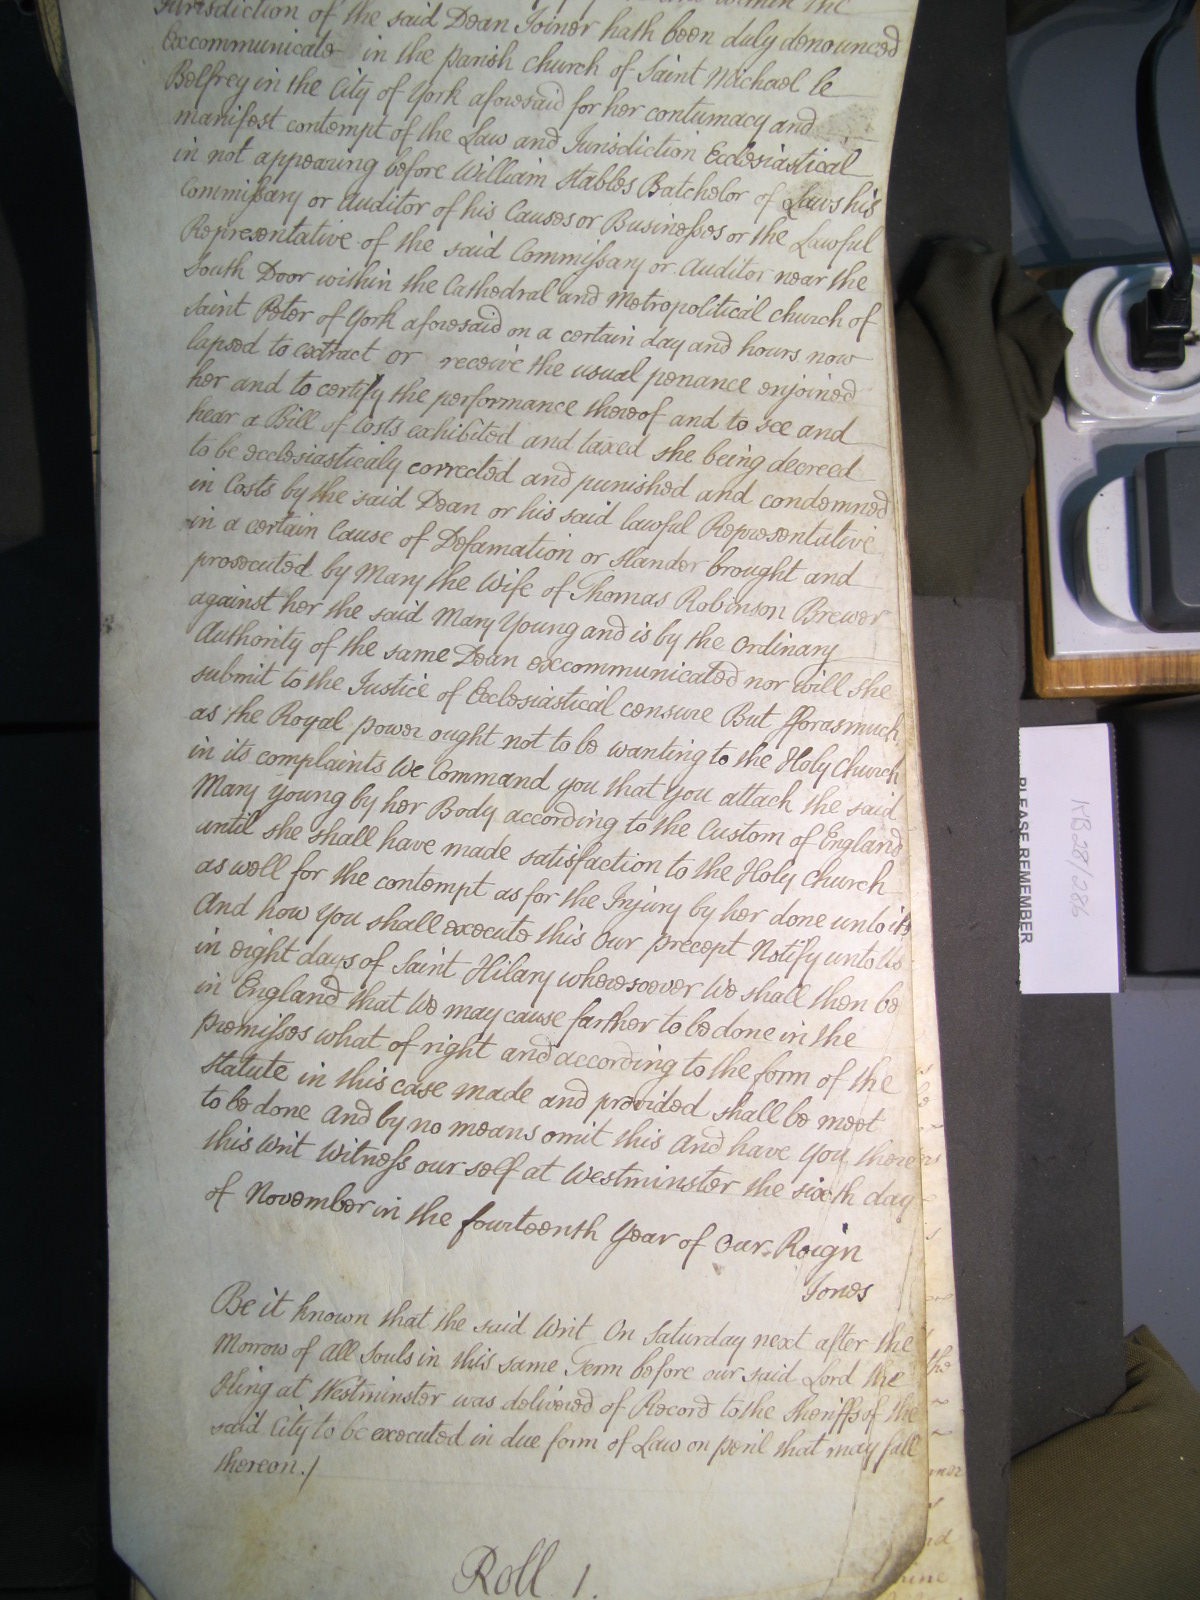 within the
Jurisdiction of the said Dean Joiner hath been duly denounced
Excommunicate in the parish church of Saint Michael le
Belfrey in the City of York aforesaid for her contumacy and
manifest contempt of the Law and Jurisdiction Ecclesiastical
in not appearing before William Stables Batchelor of Laws his
Commissary or Auditor of his Causes or Businesses or the Lawful
Representative of the said Commissary or Auditor near the
South Door within the Cathedral and Metropolitical church of
Saint Peter of York aforesaid on a certain day and hours now
lapsed to extract or receive the usual penance enjoined
her and to certify the performance thereof and to see and
hear a Bill of Costs exhibited and taxed she being decreed
to be ecclesiasticaly corrected and punished and condemned
in Costs by the said Dean or his said lawful Representative
in a certain Cause of Defamation or Slander brought and
prosecuted by Mary the Wife of Thomas Robinson Brewer
against her the said Mary Young and is by the Ordinary
Authority of the same Dean excommunicated nor will she
submit to the Justice of Ecclesiastical censure But fforasmuch
as the Royal power ought not to be wanting to the Holy Church
in its complaints We Command you that you attach the said
Mary Young by her Body according to the Custom of England
until she shall have made satisfaction to the Holy Church
as well for the contempt as for the Injury by her done unto it
And how you shall execute this Our precept Notify unto Us
in eight days of Saint Hilary wheresoever We shall then be
in England that We may cause farther to be done in the
premisses what of right and according to the form of the
Statute in this case made and provided shall be meet
to be done And by no means omit this And have You there
this Writ Witness our self at Westminster the sixth day
of November in the fourteenth Year of Our Reign
Jones
Be it known that the said Writ On Saturday next after the
Morrow of All Souls in this same Term before our said Lord the
King at Westminster was delivered of Record to the Sheriffs of the
said City to be executed in due form of Law on peril that may fall
thereon./
Roll 1.
PLEASE REMEMBER
KB 28/286